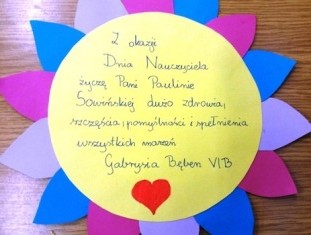 Z okazji
Dnia Nauczyciela
życzę Pani Paulinie
Sowińskiej dużo zdrowia,
szczęścia, pomyślności i spełnienia
wszystkich marzeń
Gabrysia Bęben VIB